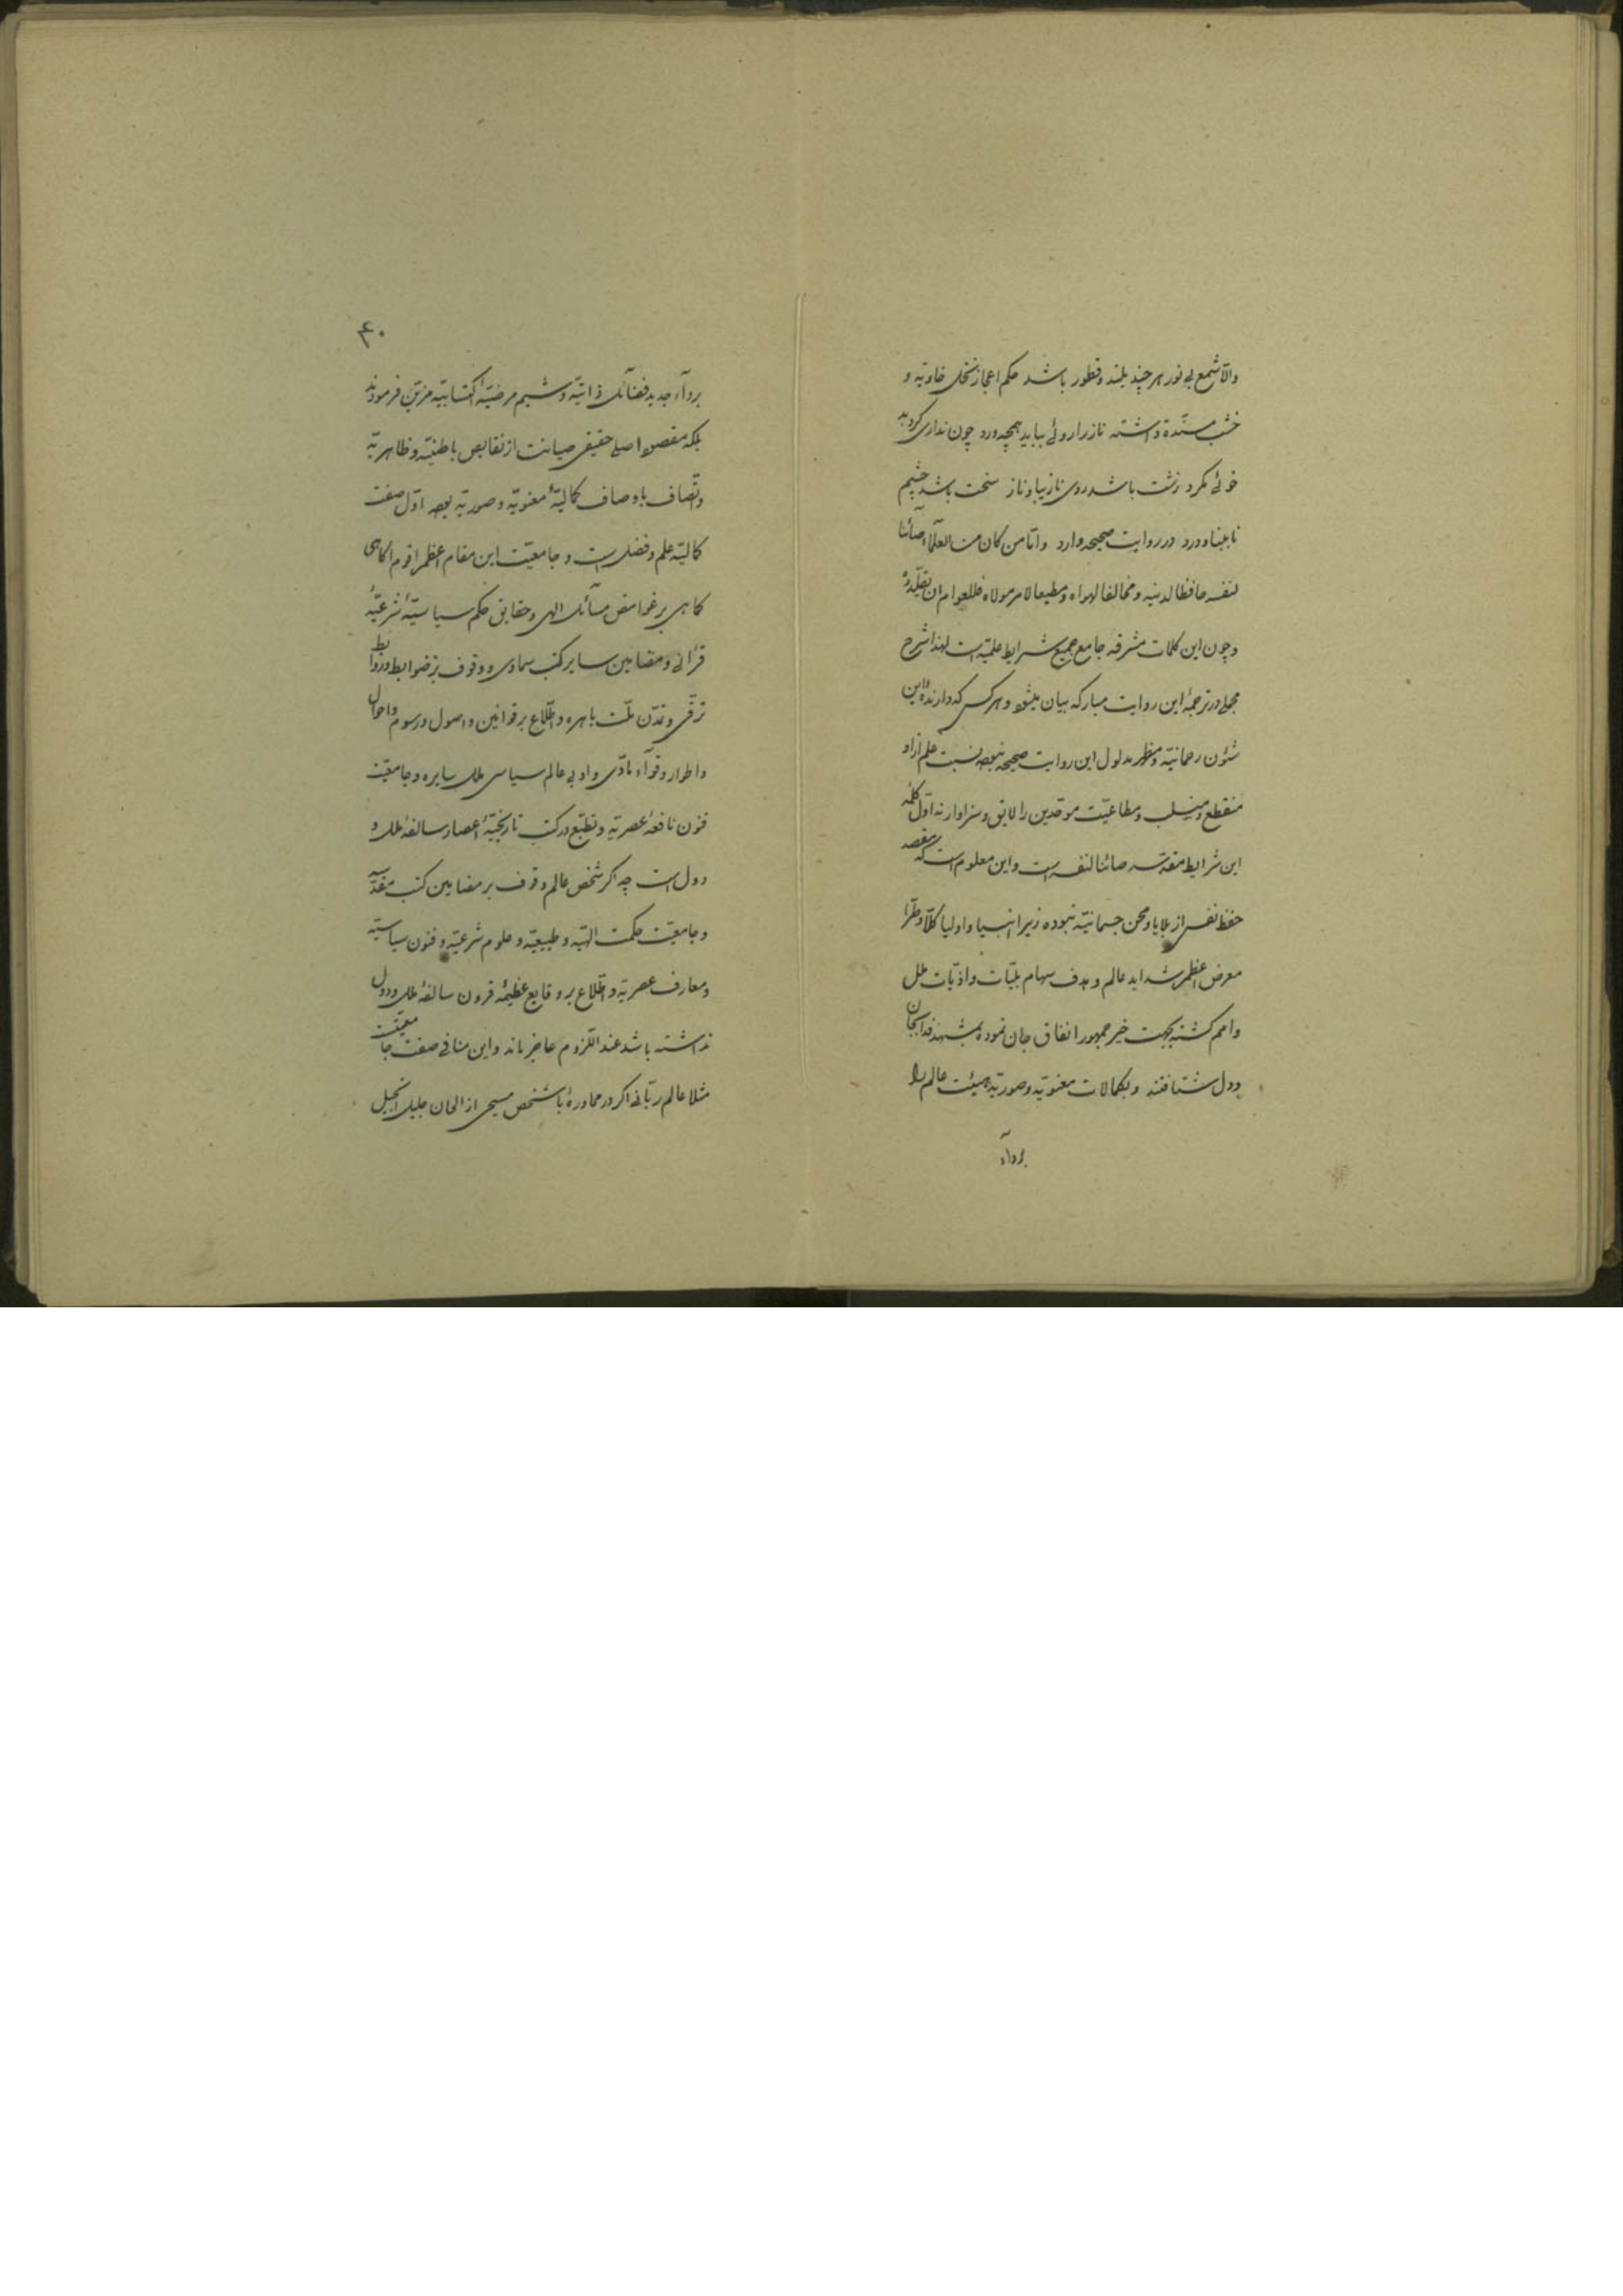 والّا شمع بی نور هر چند بلند و قطور باشد حکم اعجاز نخل خاویه و
خشب مسنّدة داشته ناز را روئی بباید همچو ورد چون نداری گرد بد
خوئی مگرد زشت باشد روی نازیبا و ناز سخت باشد چشم
نابینا و درد در روایت صحیحه وارد وامّا من کان من العلمآء صائناً
لنفسه حافظا لدینه و مخالفا لهواه و مطیعا لامر مولاه فللعوام ان یقلّدوه
و چون این کلمات مشرقه جامع جمیع شرایط علمیّه است لهذا شرح
مجملی در ترجمهٔ این روایت مبارکه بیان میشود و هر کس که دارندهٔ این
شئون رحمانیّه و مظهر مدلول این روایت صحیحه نبوده نسبت علم از او
منقطع و منسلب و مطاعیّت موحّدین را لایق و سزاوار نه اوّل کلمهٔ
این شرایط مقدّسه صائنا لنفسه است و این معلوم است که مقصد
حفظ نفس از بلایا و محن جسمانیّه نبوده زیرا انبیا و اولیا کلّا و طرّا
معرض اعظم شداید عالم و هدف سهام بلیّات و اذیّات ملل
و امم گشته بجهت خیر جمهور انفاق جان نموده بمشهد فدا بجان
و دل شتافتند و بکمالات معنویّه و صوریّه هیئت عالم را
بردآء
۴۰
بردآء جدید فضائل ذاتیّه و شیم مرضیّهٔ اکتسابیّه مزیّن فرمودند
بلکه مقصود اصلی حقیقی صیانت از نقایص باطنیّه و ظاهریّه
و اتّصاف باوصاف کمالیّهٔ معنویّه و صوریّه بوده اوّل صفت
کمالیّه علم و فضل است و جامعیّت این مقام اعظم اقوم آگاهی
کاهی بر غوامض مسائل الهی و حقایق حکم سیاسیّهٔ شرعیّهٔ
قرآنی و مضامین سایر کتب سماوی و وقوف بر ضوابط و روابط
ترقّی و تمدّن ملّت باهره و اطّلاع بر قوانین و اصول و رسوم و احوال
و اطوار و قوآء مادّی و ادبی عالم سیاسی ملل سایره و جامعیّت
فنون نافعهٔ عصریّه و تطبّع در کتب تاریخیّهٔ اعصار سالفهٔ ملل و
دول است چه اگر شخص عالم وقوف بر مضامین کتب مقدّسه
و جامعیّت حکمت الهیّه و طبیعیّه و علوم شرعیّه و فنون سیاسیّه
و معارف عصریّه و اطّلاع بر وقایع عظیمهٔ قرون سالفهٔ ملل و دول
نداشته باشد عند اللّزوم عاجز ماند و این منافی صفت جامعیّت
مثلا عالم ربّانی اگر در محاورهٔ با شخص مسیحی از الحان جلیل انجیل